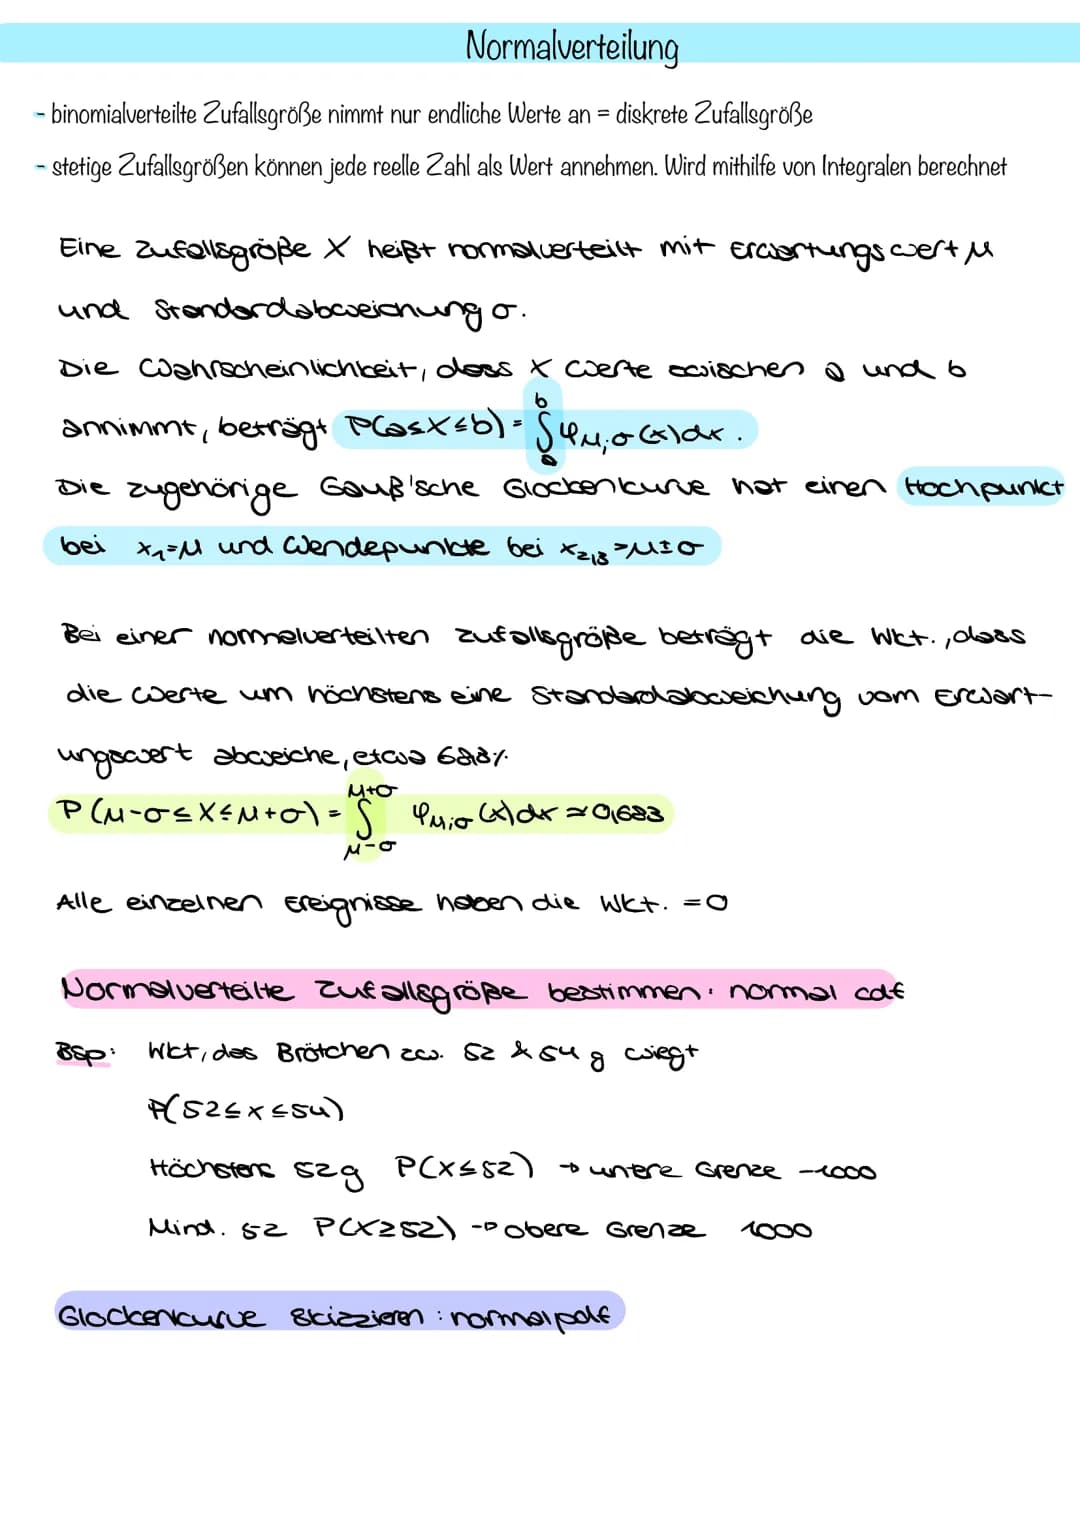 Normalverteilung
- binomialverteilte Zufallsgröße nimmt nur endliche Werte an = diskrete Zufallsgröße
- stetige Zufallsgrößen können jede reelle Zahl als Wert annehmen. Wird mithilfe von Integralen berechnet
Eine Zufallsgröße X heißt normalverteilt mit Erwartungswert μ
und Standardabweichung σ.
Die Wahrscheinlichkeit, dass X Werte zwischen a und b
annimmt, beträgt P(a≤X≤b) = ∫ₐᵇ φμ;σ(x)dx.
Die zugehörige Gauß'sche Glockenkurve hat einen Hochpunkt
bei x₁=μ und Wendepunkte bei x₂,₃=μ±σ
Bei einer normalverteilten Zufallsgröße beträgt die Wkt., dass
die Werte um höchstens eine Standardabweichung vom Erwart-
ungswert abweiche, etwa 68,3%.
P(μ-σ≤X≤μ+σ) = ∫ μ-σ μ+σ φμ;σ(x)dx ≈ 0,683
Alle einzelnen Ereignisse haben die Wkt. =0
Normalverteilte Zufallsgröße bestimmen: normal cdf
Bsp: Wkt, das Brötchen zw. 52 & 54 g wiegt
P(52≤x≤54)
Höchstens 52g P(X≤52) → untere Grenze -1000
Mind. 52 P(X≥52) → obere Grenze 1000
Glockenkurve skizzieren: normalpdf